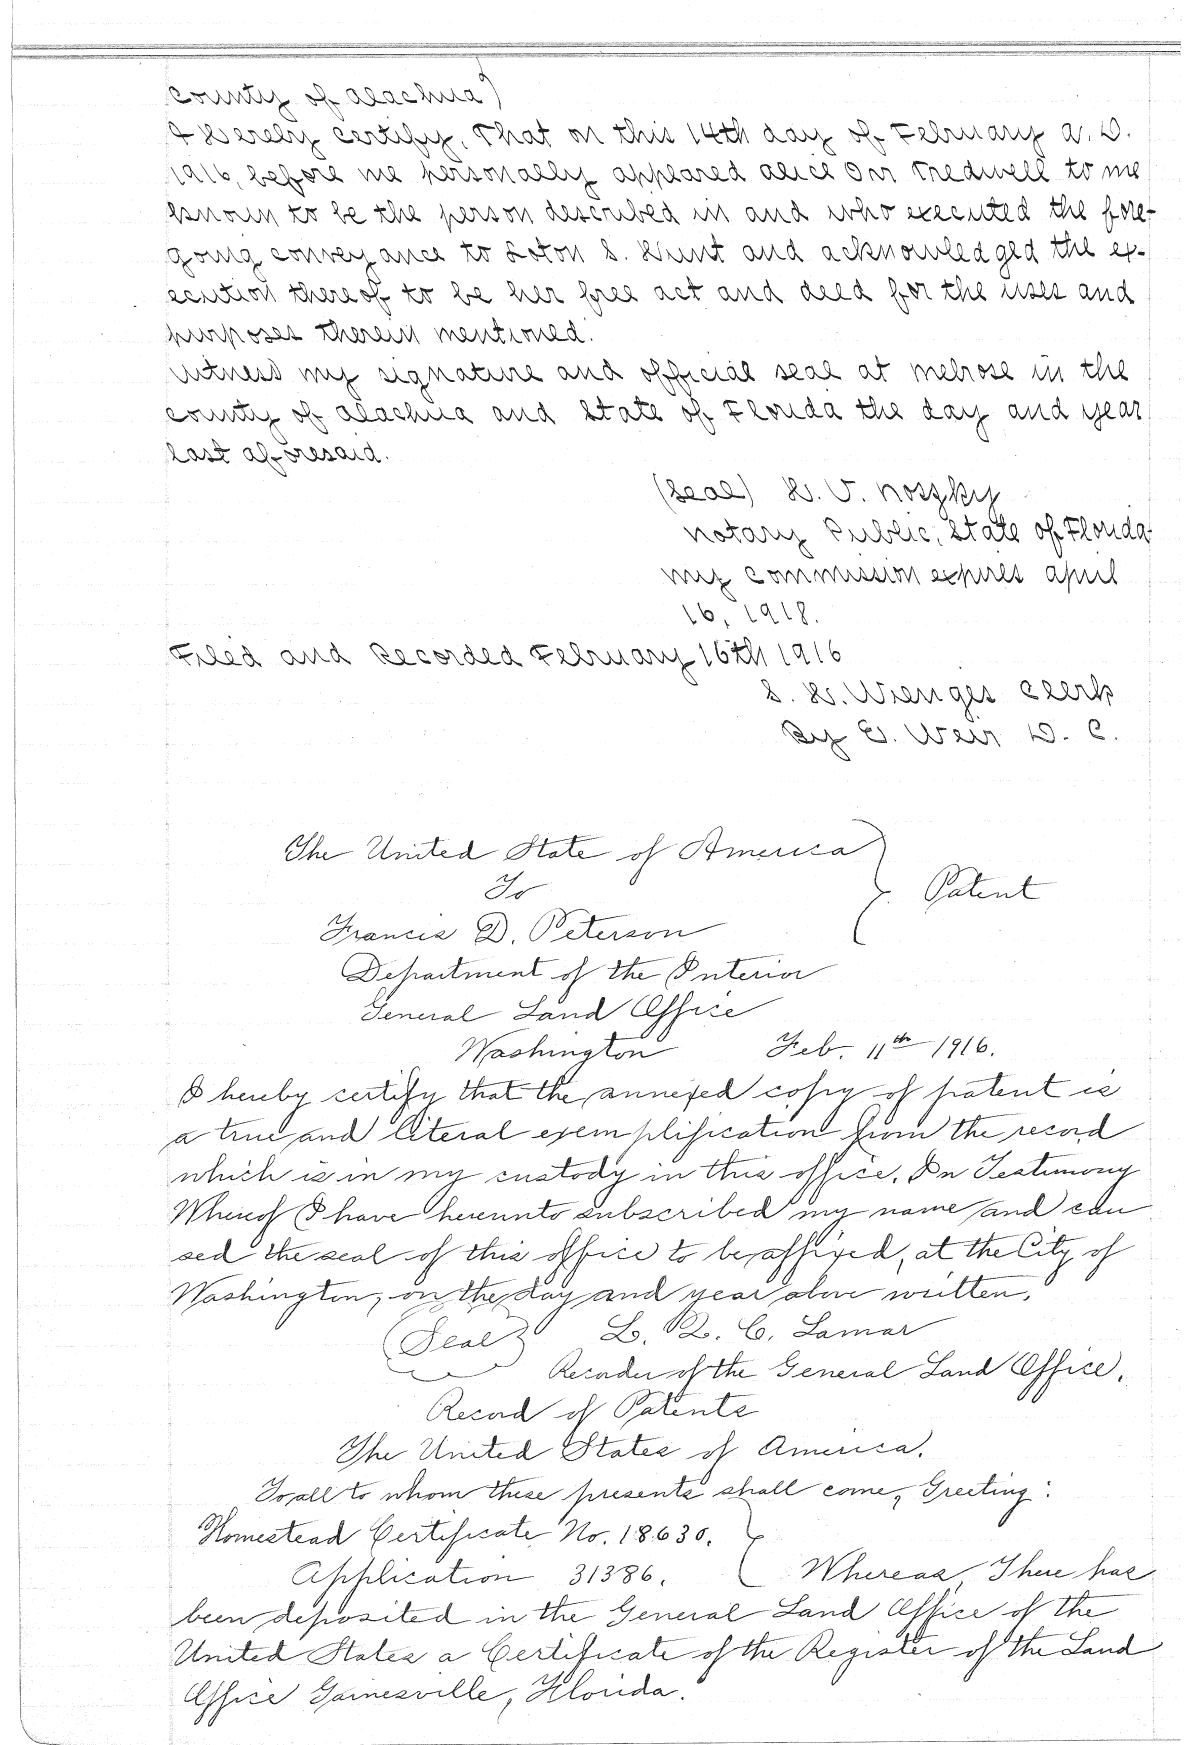 County of Alachua)
I Hereby Certify, That on this 14th day of February A. D.
1916, before me personally appeared Alice Orr Tredwell to me
known to be the person described in and who executed the fore-
going conveyance to Loton S. Hunt and acknowledged the ex-
ecution thereof to be her free act and deed for the uses and
purposes therein mentioned.
Witness my signature and official seal at Melrose in the
County of Alachua and State of Florida the day and year
last aforesaid.
(Seal) H. V. Noszky
Notary Public, State of Florida
My commission expires April
16, 1918.
Filed and Recorded February 16th 1916
S. H. Wienges Clerk
By E. Weir D. C.
The United State of America
To
Patent
Francis D. Peterson
Department of the Interior
General Land Office
Washington Feb. 11th 1916.
I hereby certify that the annexed copy of patent is
a true and literal exemplification from the record
which is in my custody in this office. In Testimony
Whereof I have hereunto subscribed my name and cau
sed the seal of this office to be affixed, at the City of
Washington, on the day and year above written.
(Seal) L. Q. C. Lamar
Recorder of the General Land Office.
Record of Patents
The United States of America.
To all to whom these presents shall come, Greeting:
Homestead Certificate No. 18630.
Application 31386. Whereas, There has
been deposited in the General Land Office of the
United States a Certificate of the Register of the Land
Office Gainesville, Florida.